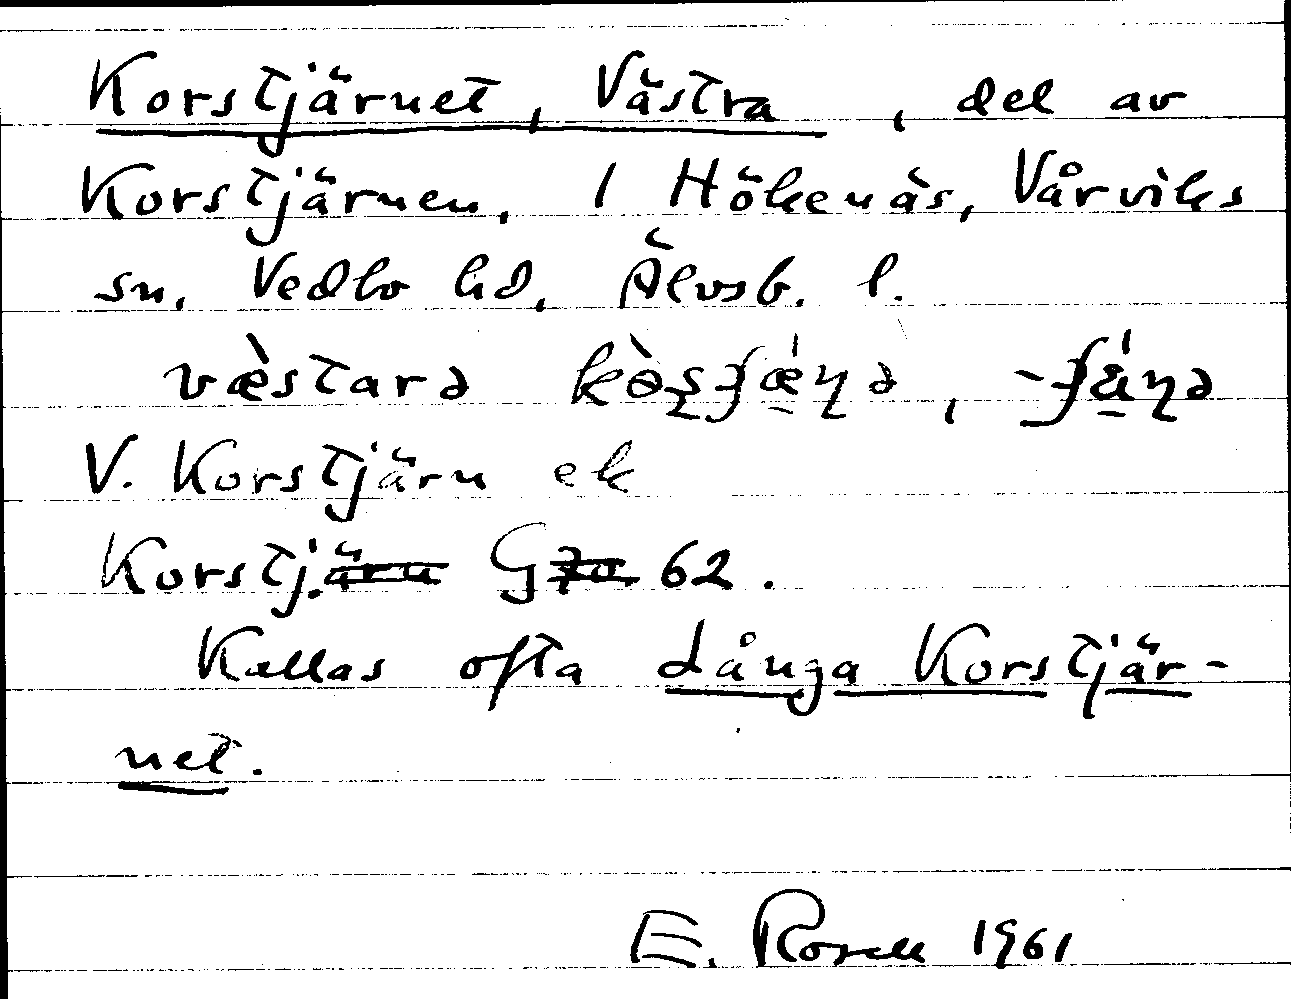 Korstjärnet, Västra, del av
Korstjärnen, 1 Hökenäs, Vårviks
sn, Vedbo hd, Älvsb. l.
væ̀starə kòʂʃǽɳə, -ʃä́ɳə
V. Korstjärn ek
Korstj. G 62.
Kallas ofta Långa Korstjär-
net.
E. Rosell 1961